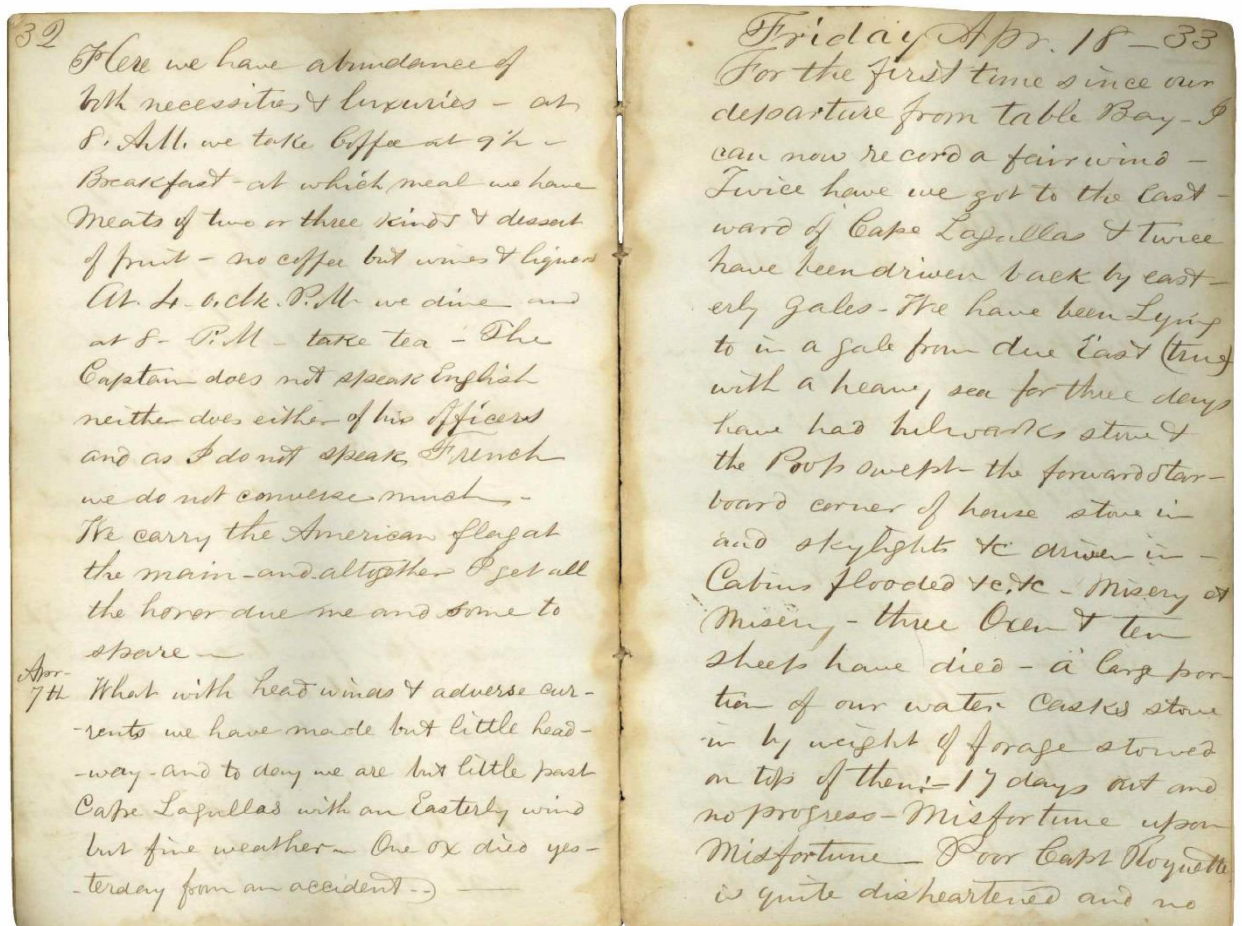 32
Here we have abundance of
both necessities & luxuries - at
8. A.M. we take Coffee at 9½ -
Breakfast - at which meal we have
Meats of two or three kinds & dessert
of fruit - no coffee but wines & liquors
At 4. o.clk. P.M. we dine and
at 8 - P.M - take tea - The
Captain does not speak English
neither does either of his officers
and as I do not speak French
we do not converse much -
We carry the American flag at
the main - and altogether I get all
the honor due me and some to
spare -
Apr-
7th What with head winds & adverse cur-
-rents we have made but little head-
-way - and to day we are but little past
Cape Lagullas with an Easterly wind
but fine weather - One ox died yes-
-terday from an accident - )
Friday Apr. 18 - 33
For the first time since our
departure from table Bay - I
can now record a fair wind -
Twice have we got to the East-
ward of Cape Lagullas & twice
have been driven back by east-
erly gales - We have been Lying
to in a gale from due East (true)
with a heavy sea for three days
have had bulwarks stove &
the Poop swept - the forward star-
board corner of house stove in
and skylights &c driven in -
Cabins flooded &c. &c - Misery of
Misery - three Oxen & ten
sheep have died - a larg por-
tion of our water casks stove
in by weight of forage stowed
on top of them: - 17 days out and
no progress - Misfortune upon
Misfortune - Poor Capt Roquette
is quite disheartened and no